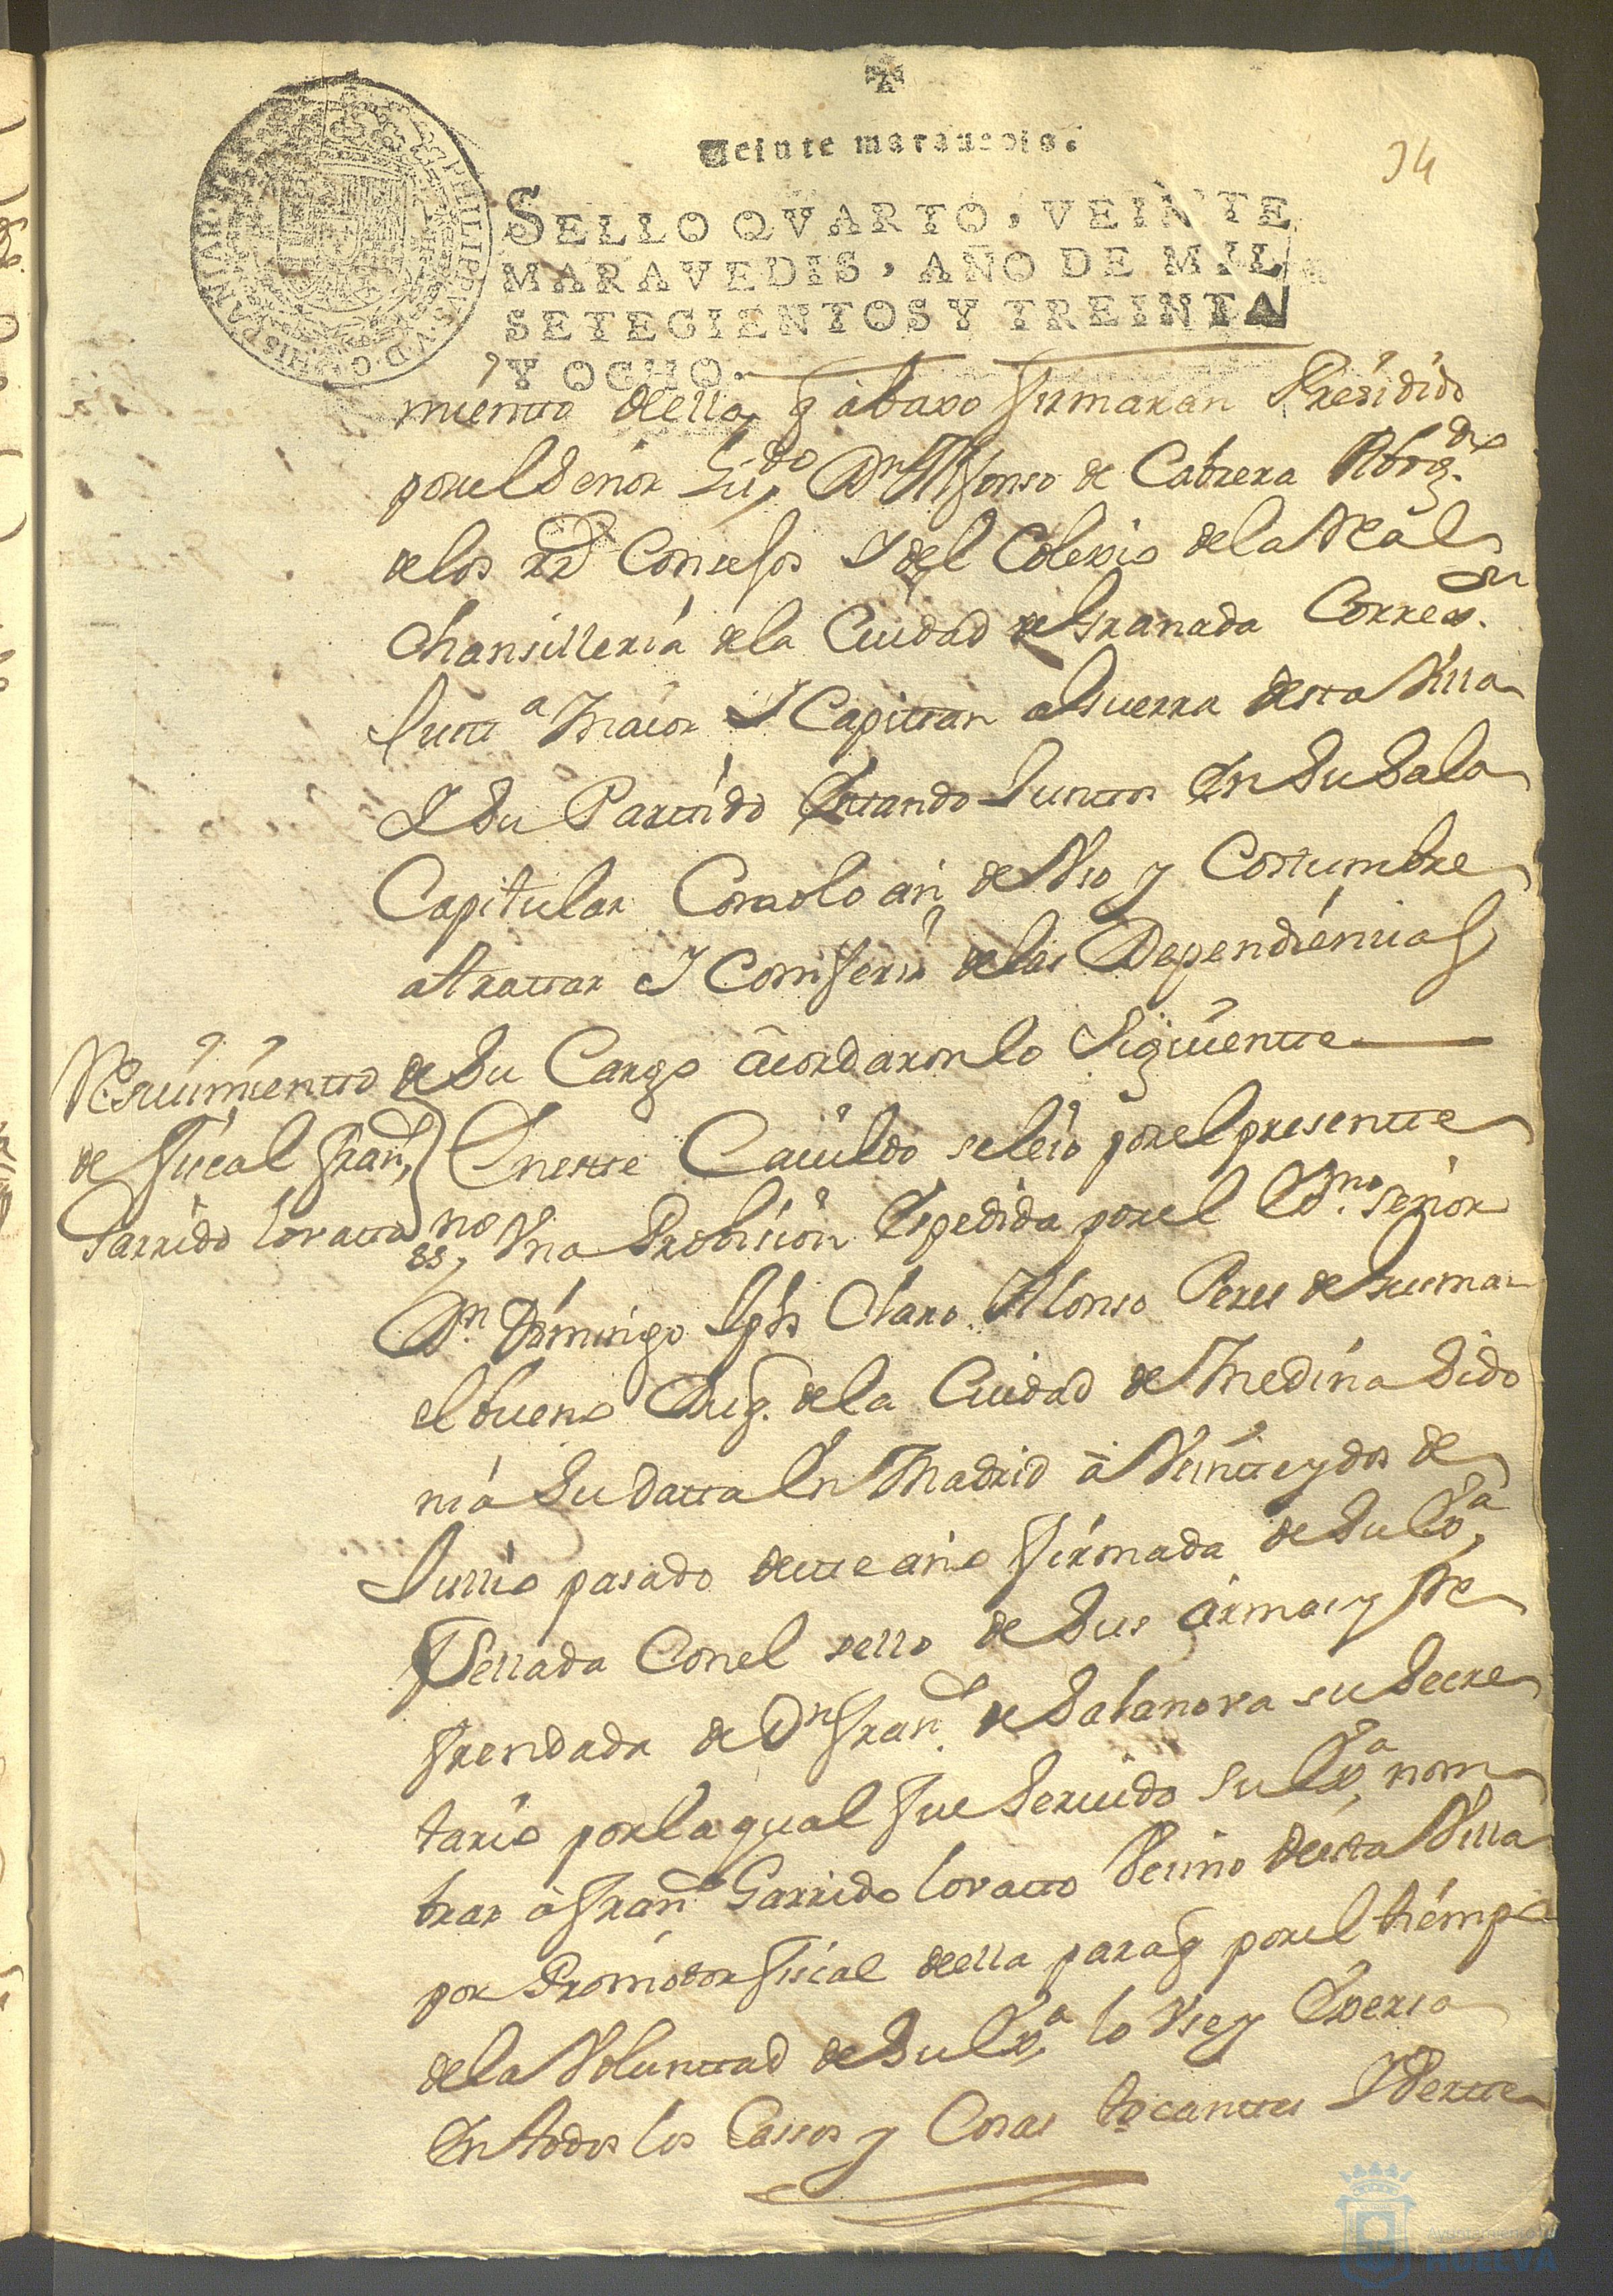 Veinte maravedis.
34
SELLO QVARTO, VEINTE
MARAVEDIS, AÑO DE MIL
SETECIENTOS Y TREINTA
Y OCHO.
PHILIPPVS V D G HISPANIAR
miento della, q abaxo firmaran Presidido
por el Señor Lizdo Dn Alfonso de Cabrera Rodrigz
de los RRs Consejos Y del Colexio de la Real
Chansilleria de la Ciudad de Granada Corregor
Justta Maior Y Capittan a Guerra destta Villa
Y Su Parttido Esttando Junttos En Su Sala
Capitular Como lo an de Uso y Costumbre
a trattar Y Comferir de las Dependiencias
de Su Cargo acordaron lo Siguientte
Resivimientto
de Fiscal Franco
Garrido lovatto
En estte Cavildo se leio por el presentte
essno Una Probision Espedida por el Exmo señor
Dn Domingo Jph Claro Alonso Peres de Gusman
el bueno Duq de la Ciudad de Medina Sido
nia Su datta En Madrid a Veintte y dos de
Jullio pasado destte año firmada de Su Exa
Sellada Con el sello de Sus armas y Re
frendada de Dn Franco de Salanova su Secre
tario por la qual fue Servido Su Exa nom
brar a Franco Garrido lovatto Vecino desta Villa
por Promotor fiscal della para q por el tiempo
de la Voluntad de Su Exa lo Use y Exersa
En todos los Cassos y Cosas tocanttes Y Pertte
Ayuntamiento de
HUELVA